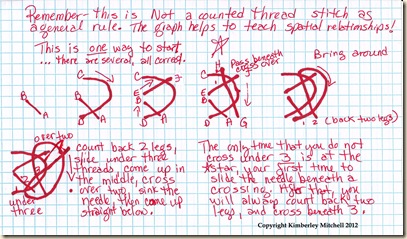 Remember - this is Not a counted thread stitch as
a general rule. The graph helps to teach spatial relationships!
This is one way to start
... there are several, all correct.
Pass beneath
cross over
Bring around
B
A
C
B
D
A
C
E
B
D
A
F
C
H
E
B
D
A
G
1
2
(back two legs)
over two
under
three
count back 2 legs,
slide under three
threads come up in
the middle, cross
over two, sink the
needle, then come up
straight below.
The only time that you do not
cross under 3 is at the
star, your first time to
slide the needle beneath a
crossing. After that, you
will always count back two
legs, and cross beneath 3.
Copyright Kimberley Mitchell 2012